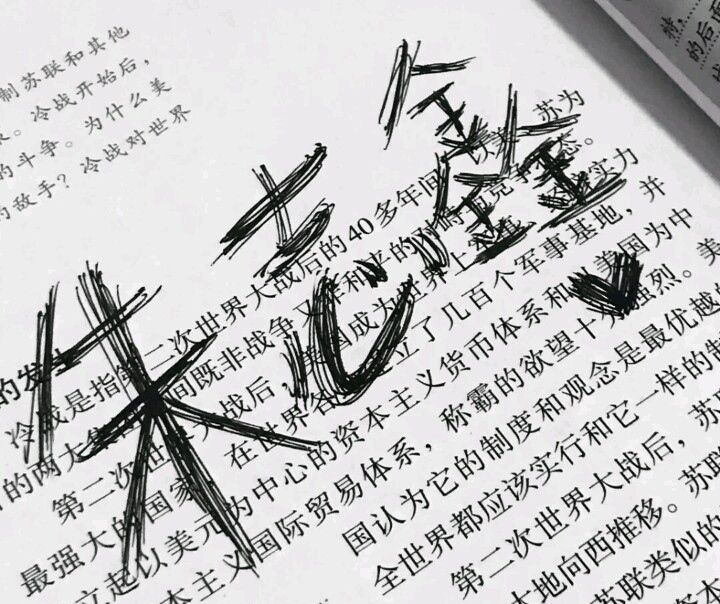 制苏联和其他
。冷战开始后,
的斗争。为什么美
的敌手?冷战对世界
特,
的后面
朱志鑫
的发
冷战是指第二次世界大战后的40多年间 苏为
的两大 间既非战争又 和平的 态。
第二次世界大战后, 国成为世界上 实力
最强大的国家 在世界各 立了几百个军事基地,并
立起以美元为中心的资本主义货币体系和 美国为中
本主义国际贸易体系,称霸的欲望十 强烈。美
国认为它的制度和观念是最优越的
全世界都应该实行和它一样的制
第二次世界大战后,苏
大地向西推移。苏联
苏联类似的
资本